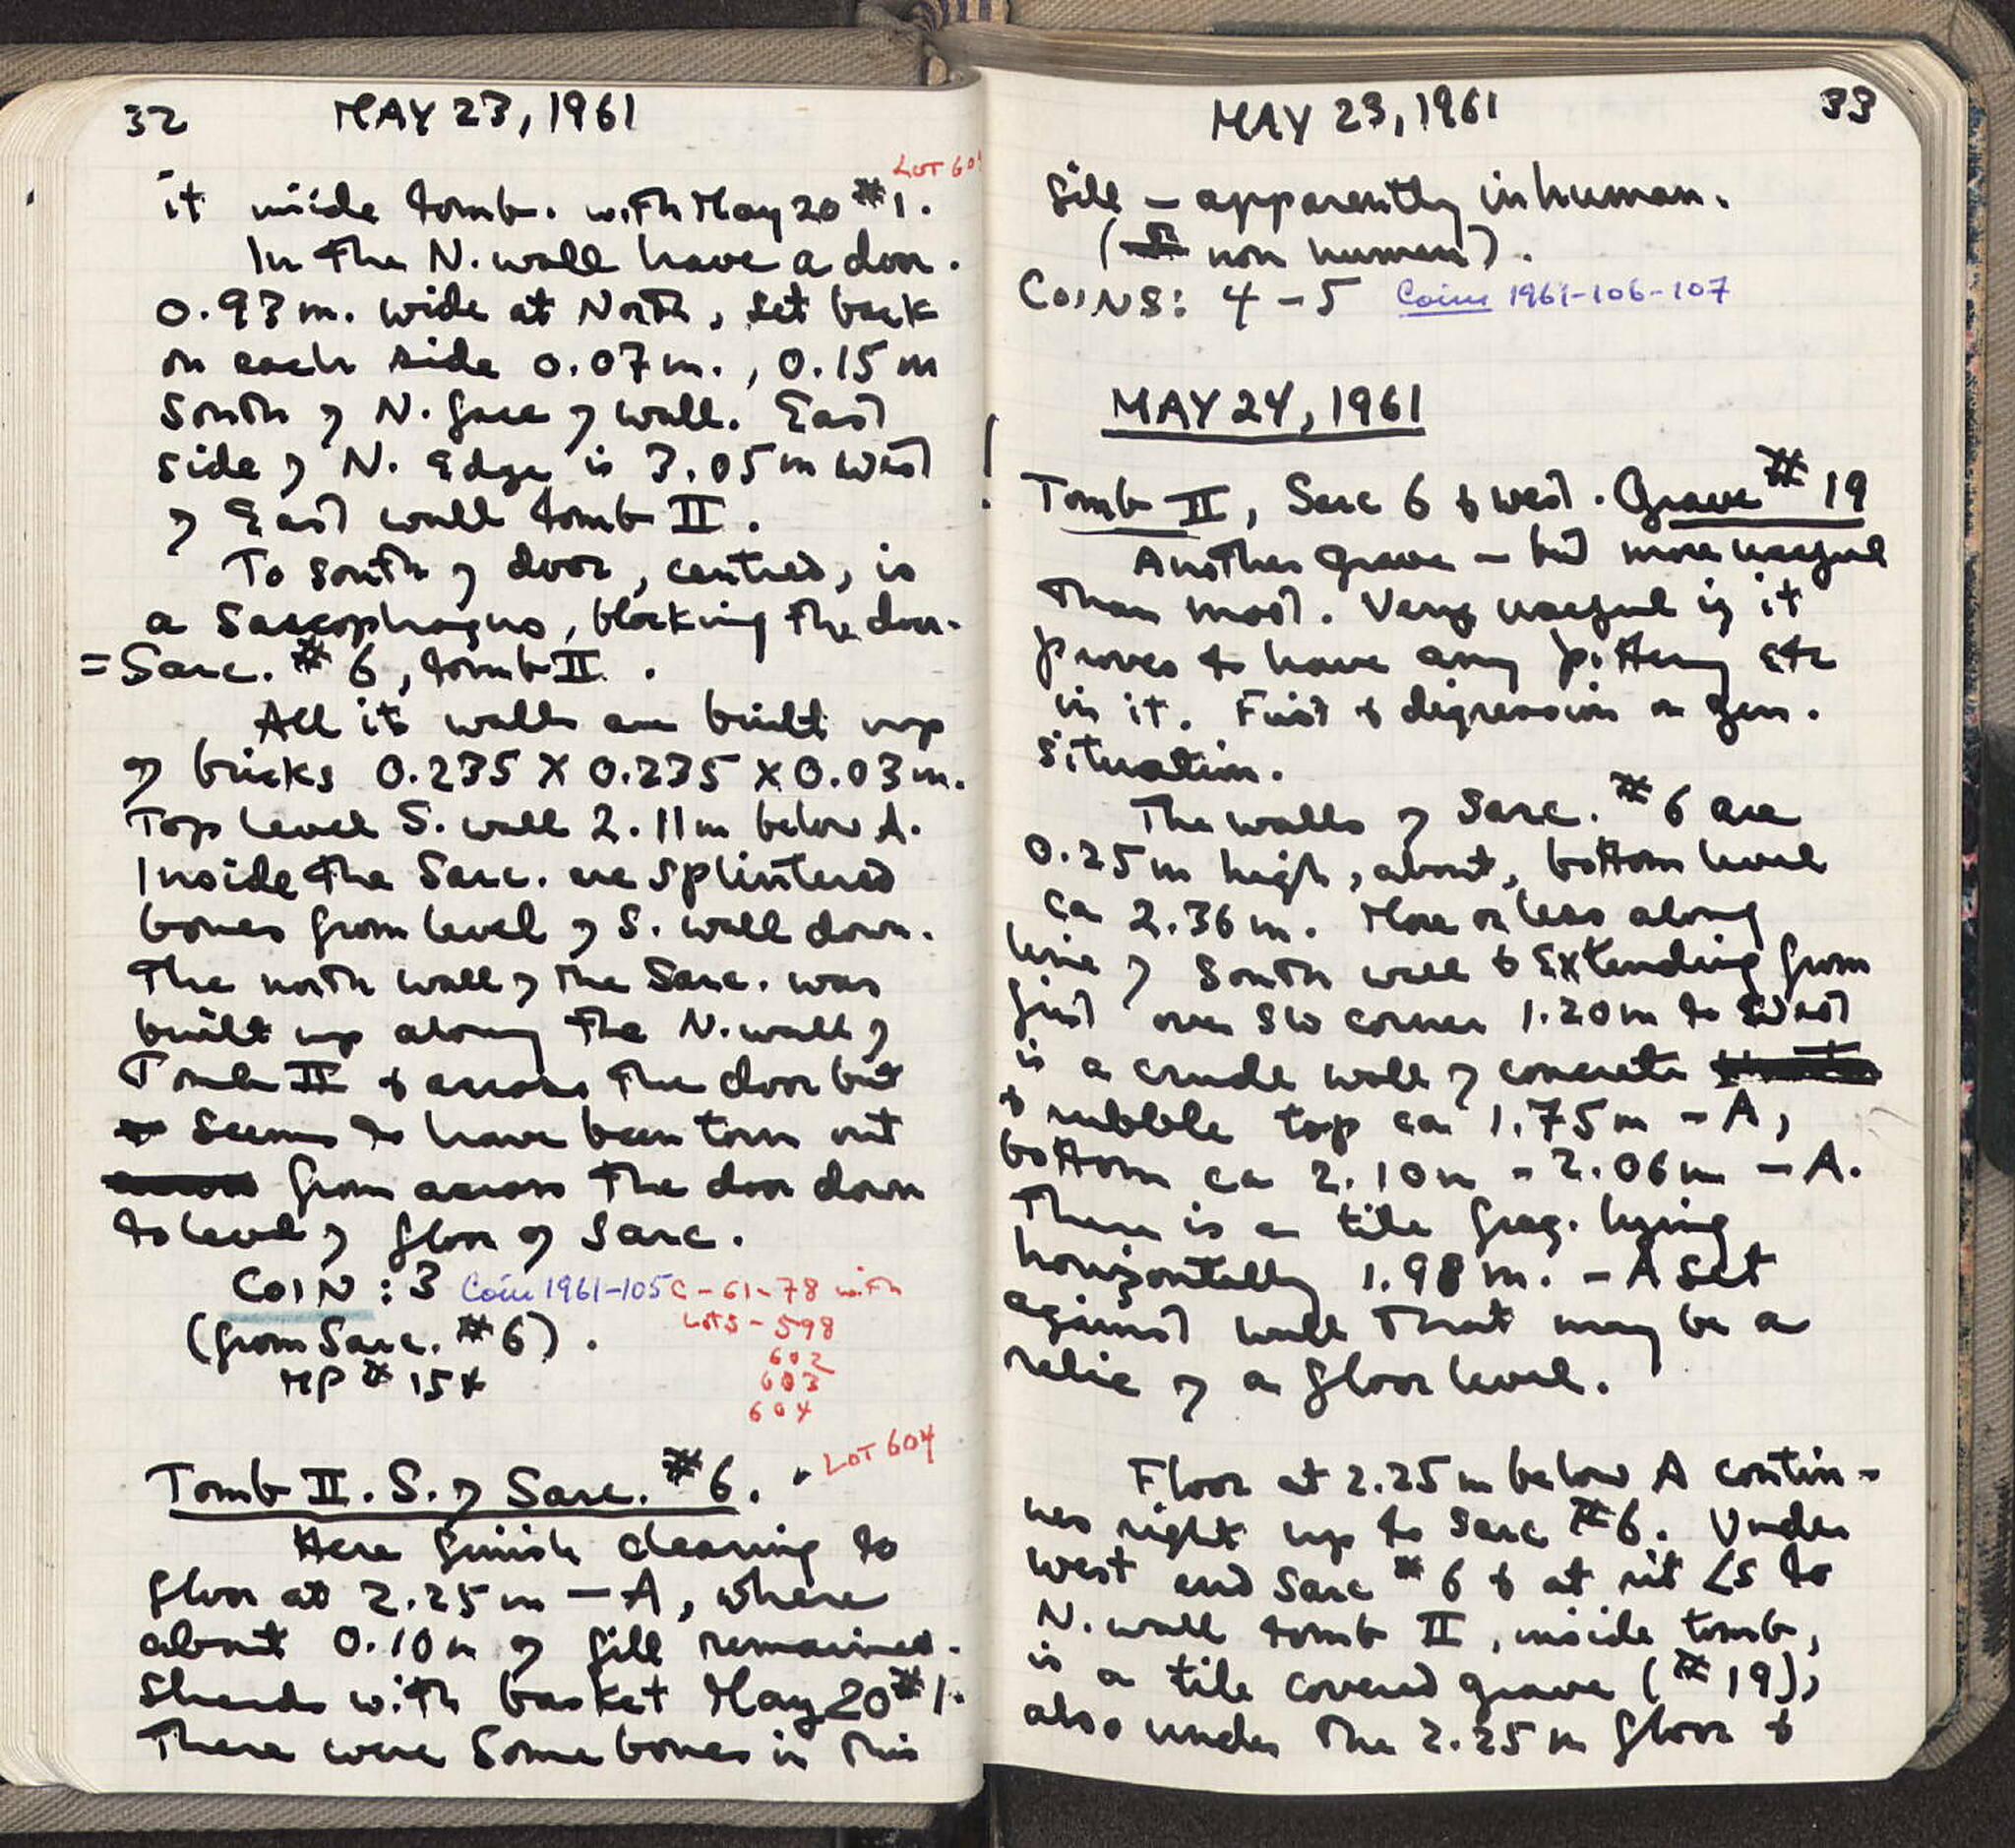 32 MAY 23, 1961
LOT 60
it inside tomb. with May 20 #1.
In the N. wall have a door.
0.93 m. wide at North, set back
on each side 0.07 m., 0.15 m
South of N. face of wall. East
side of N. Edge is 3.05 m West
of East wall tomb II.
To south of door, centred, is
a Sarcophagus, blocking the door.
= Sarc. #6, tomb II.
All its walls are built up
of bricks 0.235 X 0.235 X 0.03 m.
Top level S. wall 2.11 m below A.
Inside the Sarc. are splintered
bones from level of S. wall down.
The north wall of the Sarc. was
built up along the N. wall of
Tomb II & across the door but
seems to have been torn out
from across the door down
to level of floor of Sarc.
COIN: 3 Coin 1961-105 C-61-78 with
(from Sarc. #6). Lots - 598
602
MP # 154 603
604
Tomb II. S. of Sarc. #6. LOT 604
Here finish clearing to
floor at 2.25 m - A, where
about 0.10 m of fill remained.
Sherds with basket May 20 #1.
There were some bones in this
MAY 23, 1961 33
fill - apparently inhuman.
(non human).
COINS: 4 - 5 Coins 1961-106-107
MAY 24, 1961
Tomb II, Sarc 6 & west. Grave #19
Another grave - but more useful
than most. Very useful if it
proves to have any pottery etc
in it. First a digression on gen.
situation.
The walls of Sarc. #6 are
0.25 m high, about, bottom level
ca 2.36 m. More or less along
line of South wall & Extending from
just over SW corner 1.20 m to West
is a crude wall of concrete
& rubble top ca 1.75 m - A,
bottom ca 2.10 m - 2.06 m - A.
There is a tile frag. lying
horizontally 1.98 m. - A set
against wall that may be a
relic of a floor level.
Floor at 2.25 m below A contin-
ues right up to Sarc #6. Under
west end Sarc #6 & at rit ∠s to
N. wall tomb II, inside tomb,
is a tile covered grave (#19),
also under the 2.25 m floor &